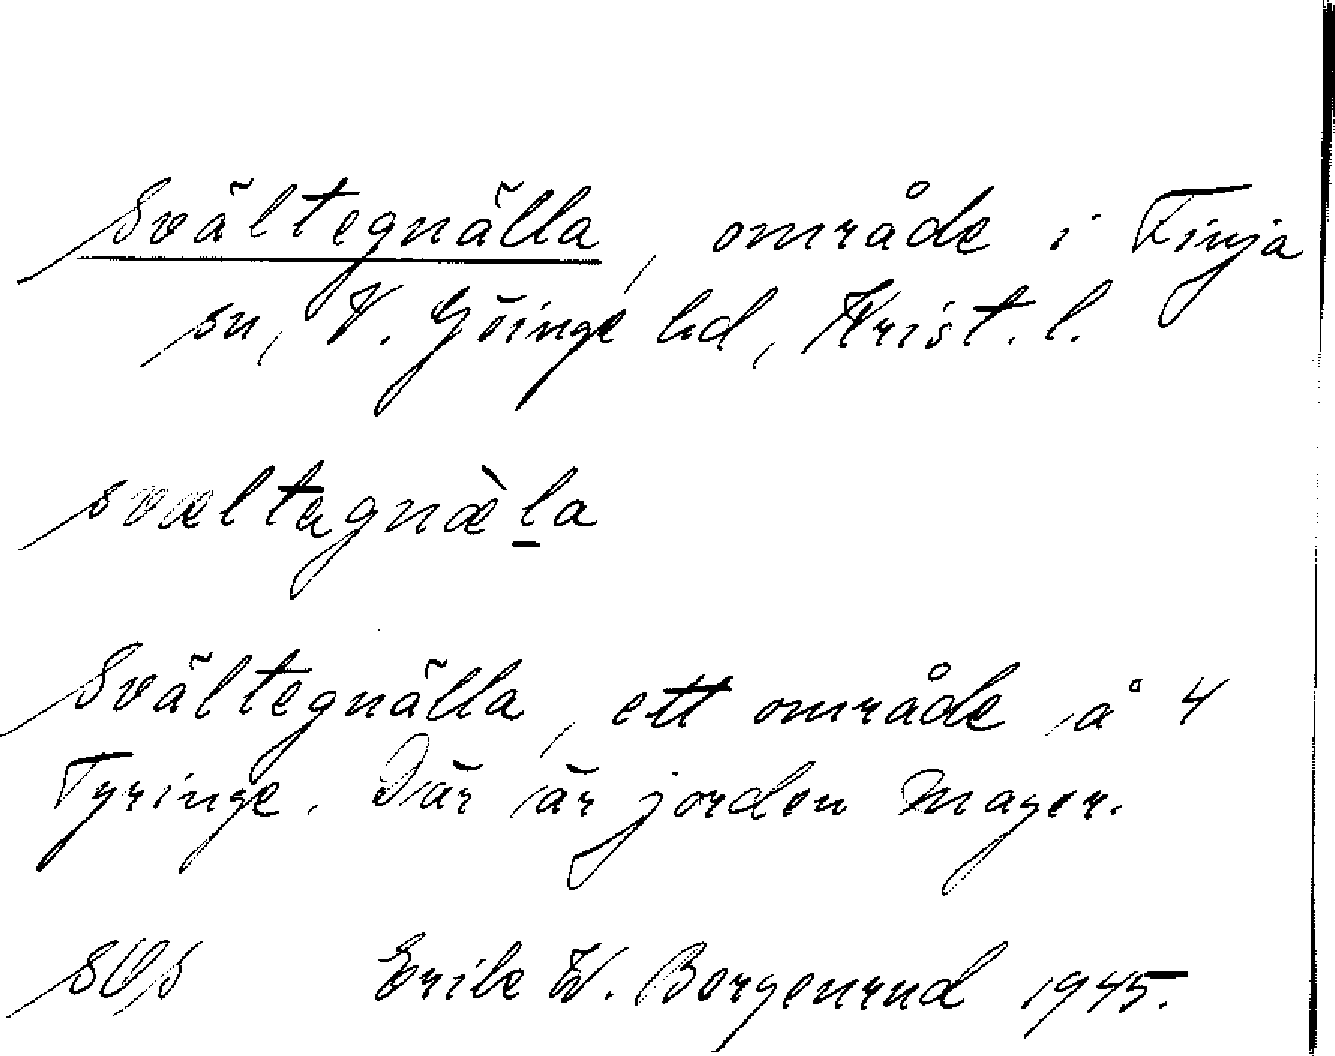 Svältegnälla, område i Finja
sn, V. Göinge hd, Krist. l.
svæltagnæ̀la
Svältegnälla, ett område å 4
Tyringe. Där är jorden mager.
Erik W. Borgenrud 1945.